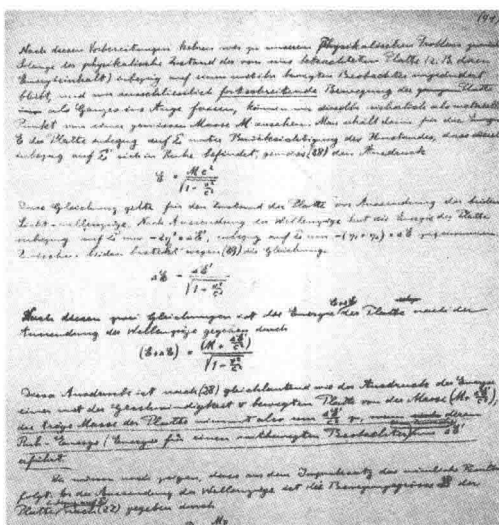 Nach diesen Vorbereitungen kehren wir zu unserem physikalischen Problem zurück.
Solange der physikalische Zustand der von uns betrachteten Platte (z. B. deren
Energieinhalt) inbezug auf einen mit ihr bewegten Beobachter ungeändert
bleibt, und wir ausschliesslich fortschreitende Bewegung der Platte
als Ganzes ins Auge fassen, können wir dieselbe als materiellen
Punkt von einer gewissen Masse M ansehen. Man erhält dann für die Energie
E der Platte inbezug auf Σ unter Berücksichtigung des Umstandes, dass dieselbe
inbezug auf Σ' sich in Ruhe befindet, gemäss (28) den Ausdruck
E = Mc² / √(1 - v²/c²)
Diese Gleichung gilt für den Zustand der Platte vor Aussendung der beiden
Licht-wellenzüge. Nach Aussendung der Wellenzüge hat die Energie der Platte
inbezug auf Σ' um ΔE', inbezug auf Σ um ΔE zugenommen.
Zwischen beiden besteht wegen die Gleichung
ΔE = ΔE' / √(1 - v²/c²)
Nach diesen zwei Gleichungen ist die Energie E+ΔE der Platte nach der
Aussendung der Wellenzüge gegeben durch
(E+ΔE) = (M + ΔE'/c²) / √(1 - v²/c²)
Dieser Ausdruck ist nach (28) gleichlautend wie der Ausdruck der Energie
einer mit der Geschwindigkeit v bewegten Platte von der Masse (M + ΔE'/c²),
die träge Masse der Platte nimmt also um ΔE'/c² zu, wenn deren
Ruh-Energie (Energie für einen mitbewegten Beobachter) um ΔE'
erfährt.
Wir müssen noch zeigen, dass aus dem Impulssatz das nämliche Resultat
folgt. Vor der Aussendung der Wellenzüge ist die Bewegungsgrösse der
Platte nach (22) gegeben durch
Mv